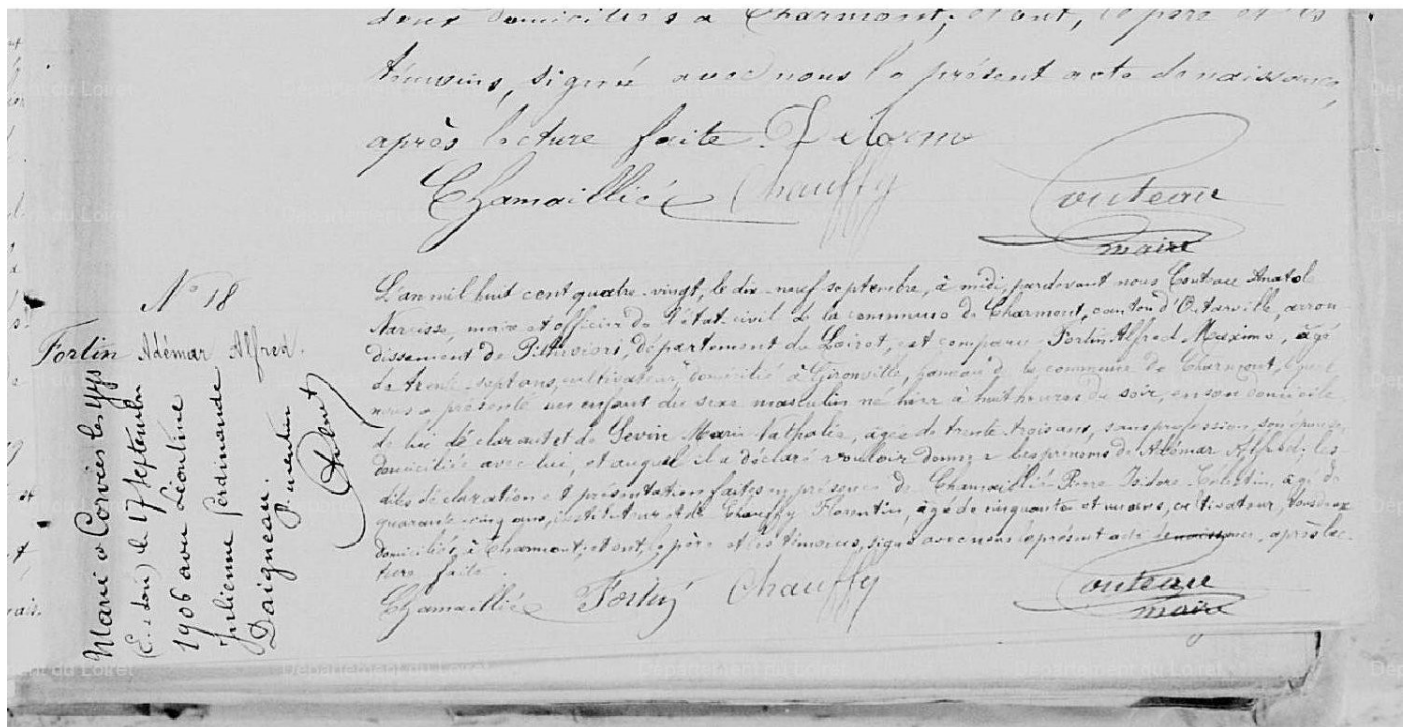 deux domiciliés à Charmont; et ont, le père et les
témoins, signé avec nous le présent acte de naissance,
après lecture faite. Delorme
Chamaillié Chauffy Couteau
maire
N° 18
Fortin Adémar Alfred.
L'an mil huit cent quatre-vingt, le dix-neuf septembre, à midi, pardevant nous Couteau Anatole
Narcisse, maire et officier de l'état-civil de la commune de Charmont, canton d'Outarville, arron-
dissement de Pithiviers, département du Loiret, est comparu Fortin Alfred Maxime, âgé
de trente-sept ans, cultivateur, domicilié à Gironville, hameau de la commune de Charmont, lequel
nous a présenté un enfant du sexe masculin né hier à huit heures du soir, en son domicile
de lui déclarant et de Sevin Marie Nathalie, âgée de trente trois ans, sans profession, son épouse,
domiciliée avec lui, et auquel il a déclaré vouloir donner les prénoms de Adémar Alfred; les
dites déclaration et présentation faites en présence de Chamaillié Pierre Isidore Célestin, âgé de
quarante-cinq ans, instituteur et de Chauffy Florentin, âgé de cinquante et un ans, cultivateur, tous deux
domiciliés, à Charmont; et ont, le père et les témoins, signé avec nous le présent acte de naissance, après lec-
ture faite.
Chamaillié Fortin Chauffy Couteau
maire
Marié à Corvées les Yys
(E. et Loir) le 17 septembre
1906 avec Léontine
Julienne Ferdinande
Daigneau.
P. mention
Département du Loiret